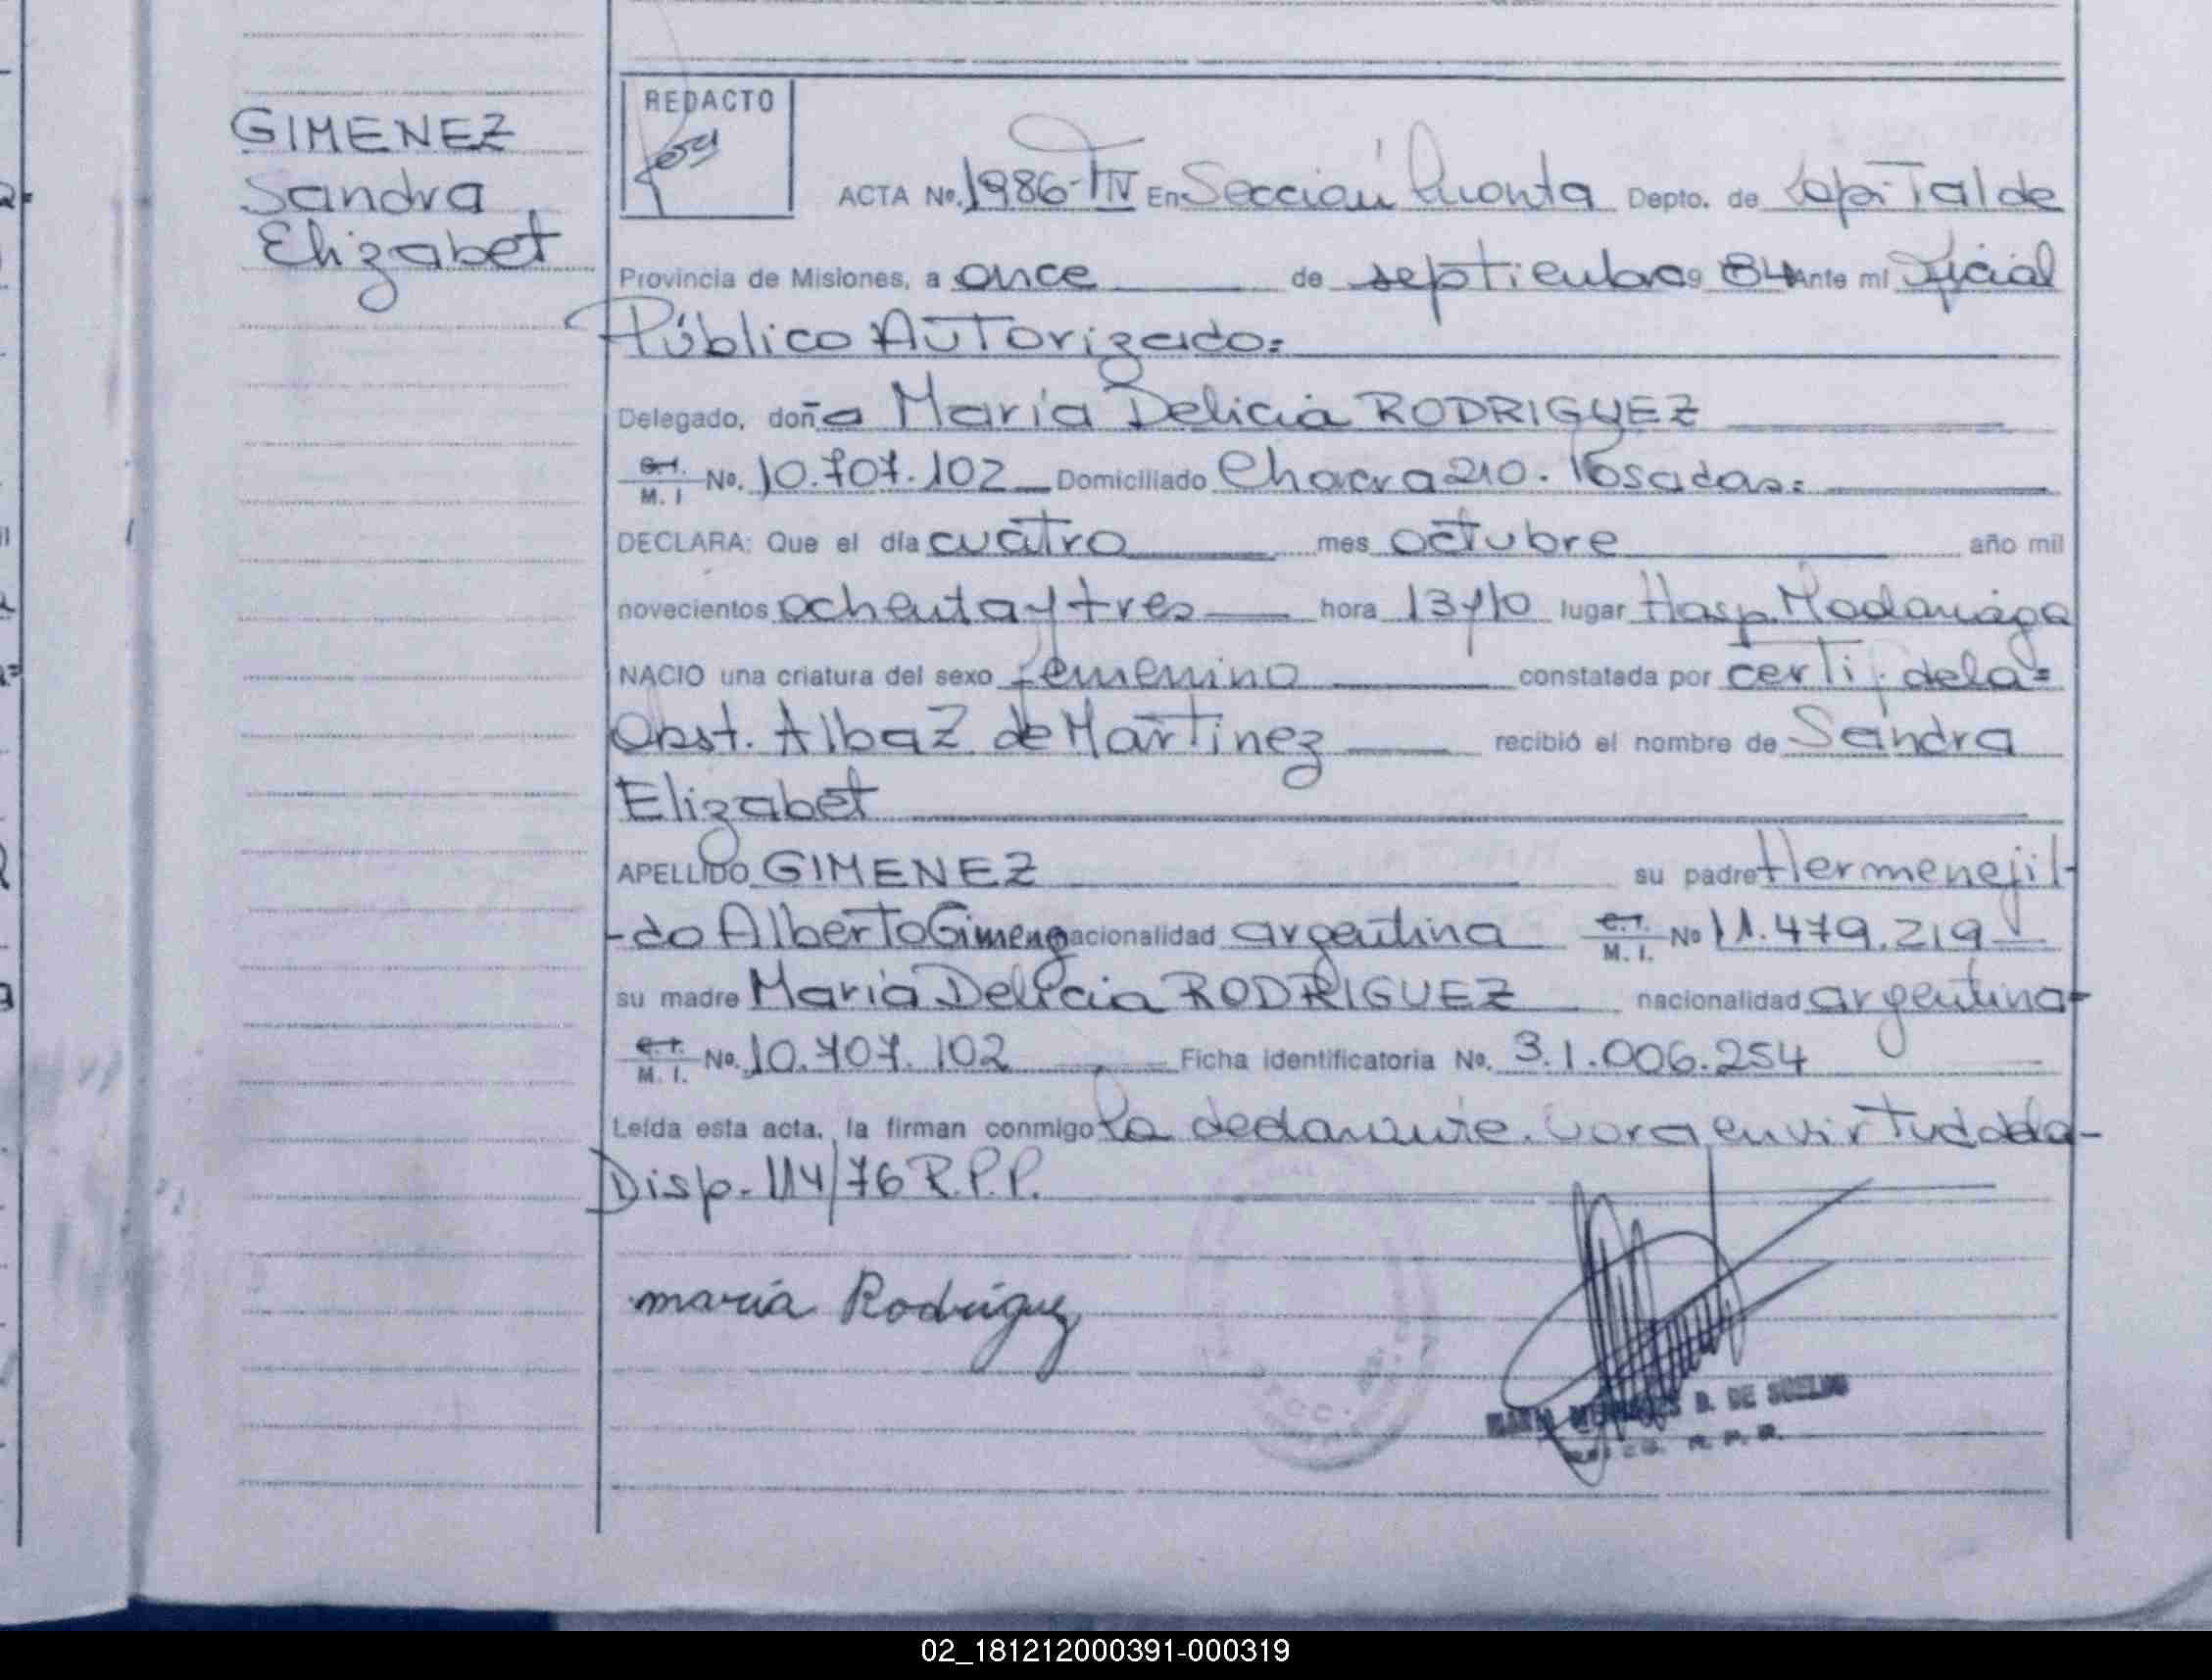 GIMENEZ
Sandra
Elizabet
REDACTO
ACTA No. 1986-TIV En Sección Cuarta Depto. de Capital de
Provincia de Misiones, a once de septiembre 19 84 Ante mí Oficial
Público Autorizado=
Delegado, doña María Delicia RODRIGUEZ
C.I. M. I No. 10.707.102 Domiciliado Chacra 210. Posadas=
DECLARA: Que el día cuatro mes octubre año mil
novecientos ochenta y tres hora 13y10 lugar Hosp. Madariaga
NACIO una criatura del sexo femenino constatada por certif. de la=
Obst. Alba Z de Martinez recibió el nombre de Sandra
Elizabet
APELLIDO GIMENEZ su padre Hermenejil-
-do Alberto Gimenez nacionalidad argentina C.I. M. I. No 11.479.219
su madre María Delicia RODRIGUEZ nacionalidad argentina=
C.I. M. I. No. 10.707.102 Ficha identificatoria No. 3.1.006.254
Leída esta acta, la firman conmigo la declarante. en virtud de la-
Disp. 114/76 R.P.P.
maria Rodriguez
B. DE
R. P. P.
02_181212000391-000319